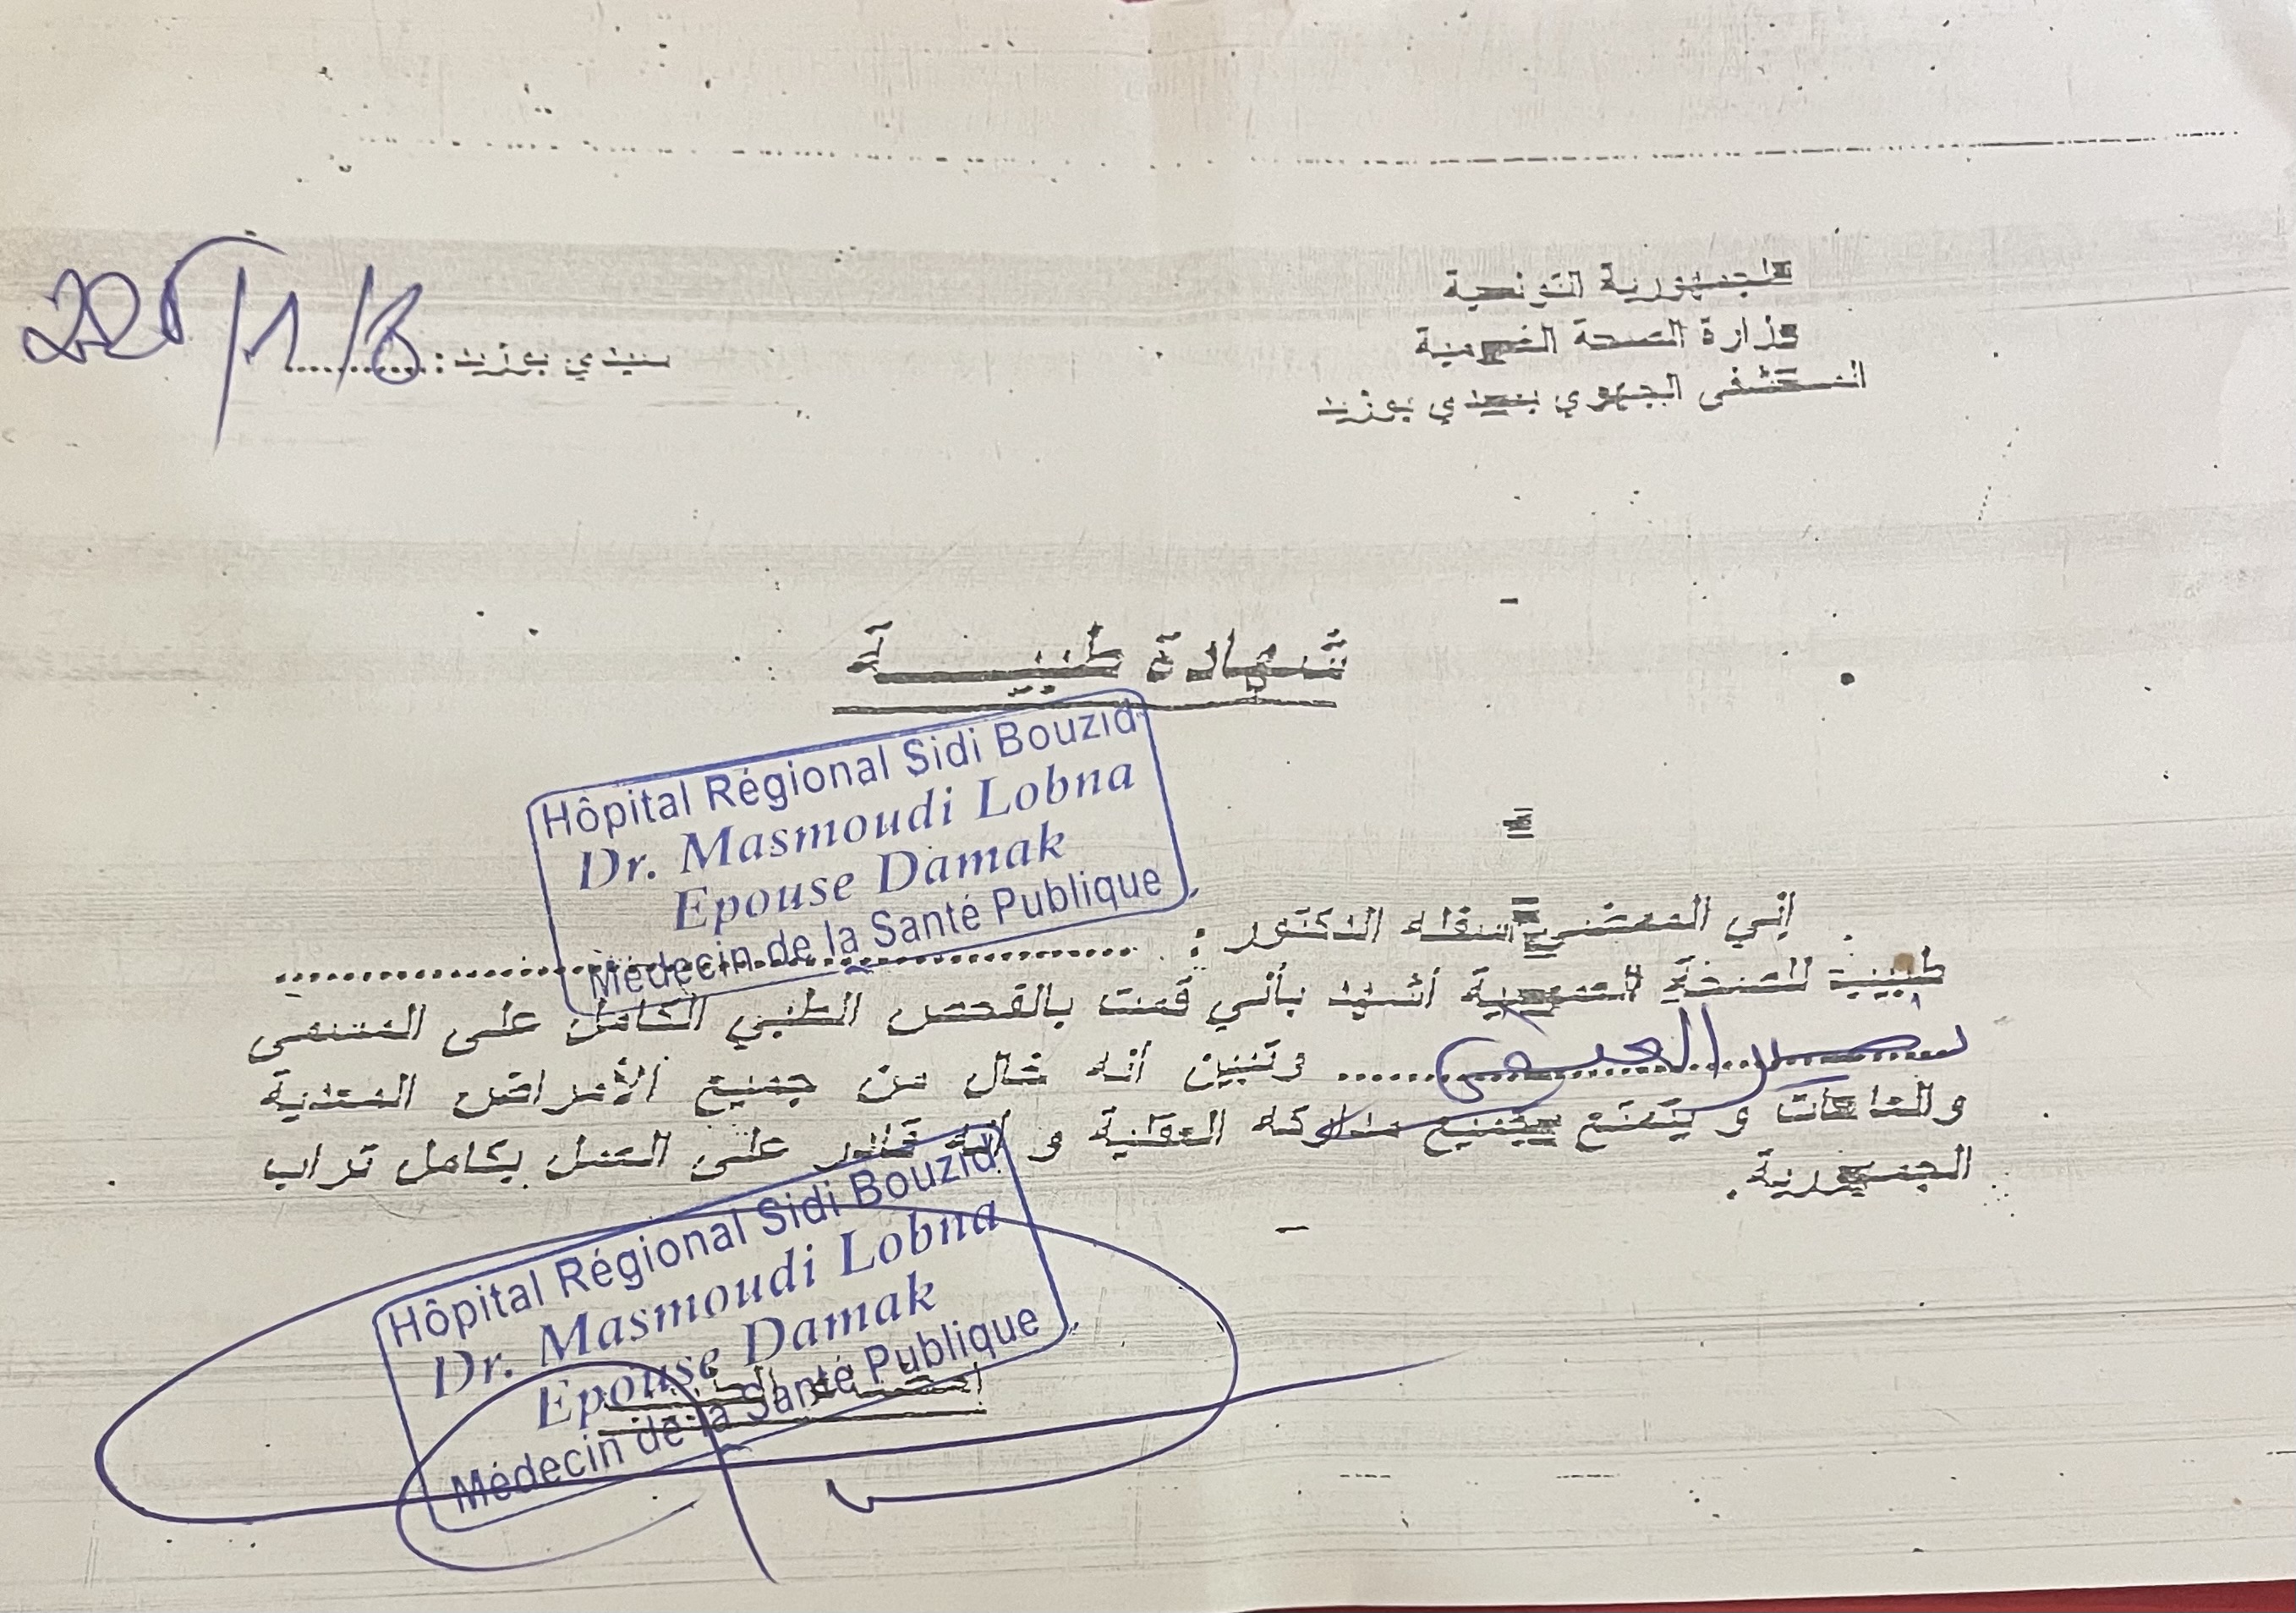 الجمهورية التونسية
وزارة الصحة العمومية
المستشفى الجهوي بسيدي بوزيد
سيدي بوزيد :
شهادة طبيـــــة
Hôpital Régional Sidi Bouzid
Dr. Masmoudi Lobna
Epouse Damak
Médecin de la Santé Publique
إني الممضي أسفله الدكتور :
طبيب للصحة العمومية أشهد بأني قمت بالفحص الطبي الكامل على المسمى
وتبين أنه خال من جميع الأمراض المعدية
والعاهات و يتمتع بجميع مداركه العقلية و أنه قادر على العمل بكامل تراب
الجمهورية.
Hôpital Régional Sidi Bouzid
Dr. Masmoudi Lobna
Epouse Damak
Médecin de la Santé Publique